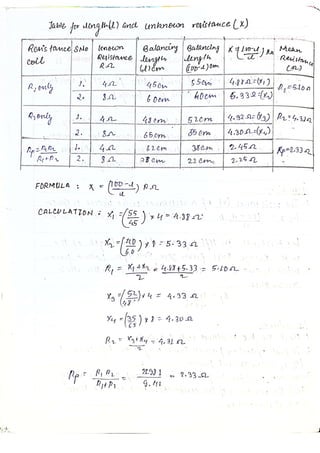 Table for length(l) and unknown resistance (X)
Resistance coil | S.No | Known Resistance R Ω | Balancing length l cm | Balancing length (100-l) cm | X = (100-l / l) R Ω | Mean Resistance (Ω)
R₁ only | 1. | 4Ω | 45cm | 55cm | 4.88Ω=(X₁) | R₁=5.10Ω
2. | 8Ω | 60cm | 40cm | 5.33Ω=(X₂)
R₂ only | 1. | 4Ω | 48cm | 52cm | 4.33Ω=(X₃) | R₂=4.31Ω
2. | 8Ω | 65cm | 35cm | 4.30Ω=(X₄)
1. | 4Ω | 62cm | 38cm | 2.45Ω | Rp=2.33Ω
2. | 8Ω | 78cm | 22cm | 2.25Ω
FORMULA : X = (100-l / l) R Ω
CALCULATION : X₁ = (55/45) × 4 = 4.88Ω
X₂ = (40/60) × 8 = 5.33Ω
R₁ = X₁+X₂ / 2 = 4.88+5.33 / 2 = 5.10Ω
X₃ = (52/48) × 4 = 4.33Ω
X₄ = (35/65) × 8 = 4.30Ω
R₂ = X₃+X₄ / 2 = 4.31Ω
Rp = R₁R₂ / R₁+R₂ = 21.981 / 9.41 = 2.33Ω